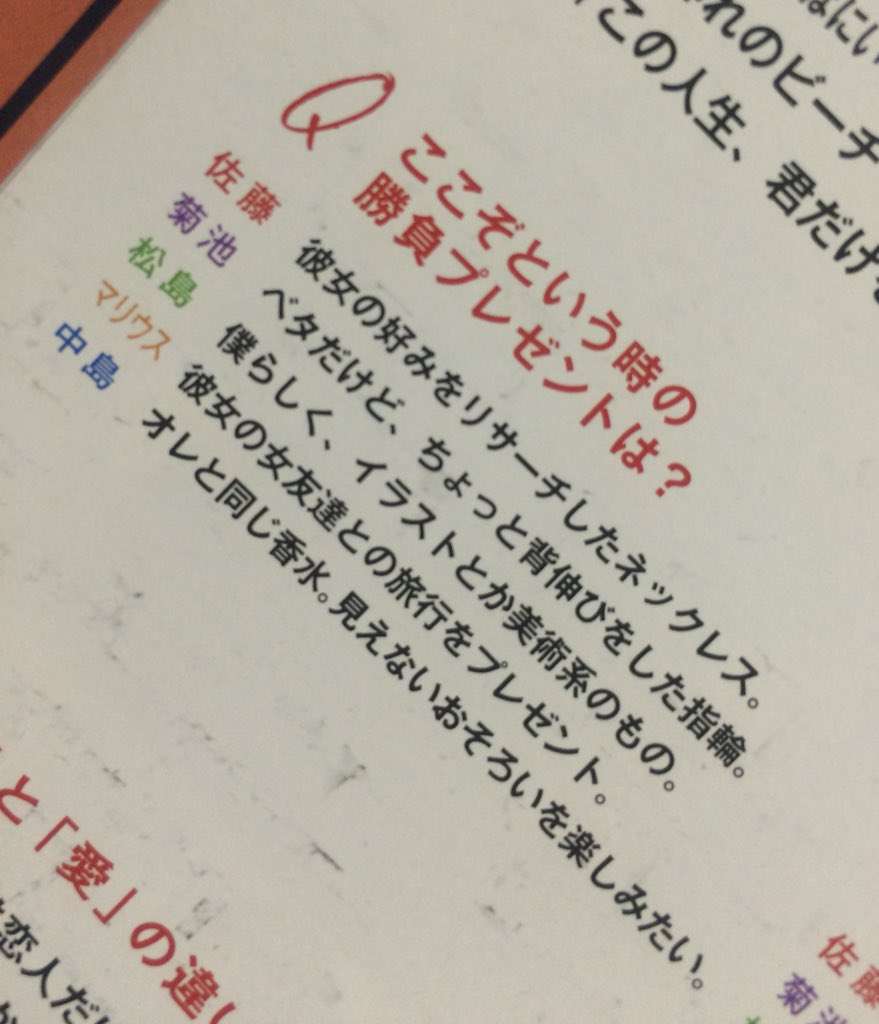 れのビーチ
この人生、君だけ
Q
ここぞという時の
勝負プレゼントは?
佐藤 彼女の好みをリサーチしたネックレス。
菊池 ベタだけど、ちょっと背伸びをした指輪。
松島 僕らしく、イラストとか美術系のもの。
マリウス 彼女の女友達との旅行をプレゼント。
中島 オレと同じ香水。見えないおそろいを楽しみたい。
と「愛」の違い
恋人だ
佐藤
菊池